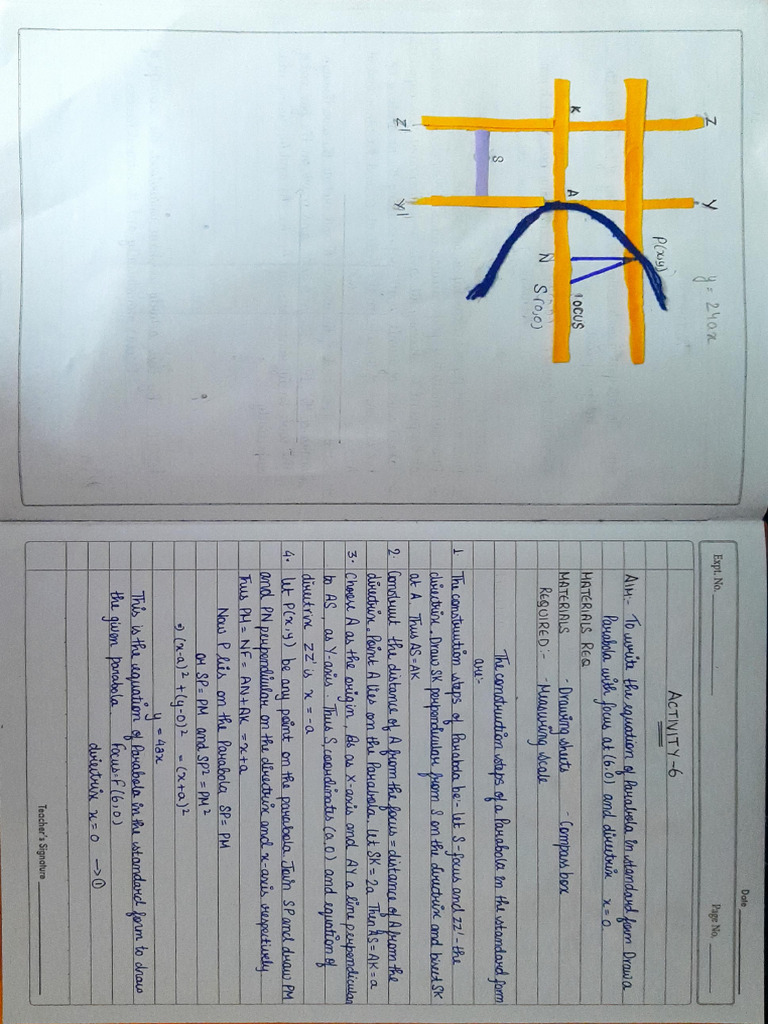 y = 240x
Z
Y
P(x,y)
K
A
N
FOCUS
S(0,0)
S
Z'
Y'
Date
Expt. No.
Page No.
ACTIVITY-6
AIM:- To write the equation of Parabola in standard form Draw a
Parabola with focus at (6,0) and directrix x=0
MATERIALS REQ
MATERIALS - Drawing sheets - Compass box
REQUIRED:- - Measuring scale
The construction steps of a Parabola in the standard form
are:-
1. The construction steps of Parabola be- let S-focus and ZZ'-the
directrix. Draw SK perpendicular from S on the directrix and bisect SK
at A. Thus AS=AK
2. Construct the distance of A from the focus = distance of A from the
directrix. Point A lies on the Parabola. Let SK = 2a Then AS=AK=a
3. Choose A as the origin, As as X-axis and AY a line perpendicular
to AS, as Y-axis. Thus S, coordinates (a,0) and equation of
directrix ZZ' is x = -a
4. let P(x,y) be any point on the parabola. Join SP and draw PM
and PN perpendicular on the directrix and x-axis respectively
Thus PM = NF = AN+AK = x+a
Now P lies on the Parabola SP=PM
OH SP=PM and SP² = PM²
⇒ (x-a)² + (y-0)² = (x+a)²
y = 4ax
This is the equation of Parabola in the standard form to draw
the given parabola. Focus: F(6,0)
directrix x=0 → ①
Teacher's Signature